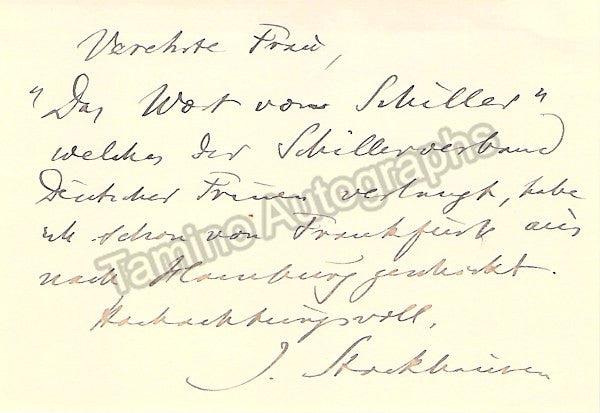 Verehrte Frau,
"Das Wort von Schiller"
welches der Schillerverband
Deutscher Frauen verlangt, habe
ich schon von Frankfurt aus
nach Hamburg geschickt.
Hochachtungsvoll,
J. Stockhausen
Tamino Autographs